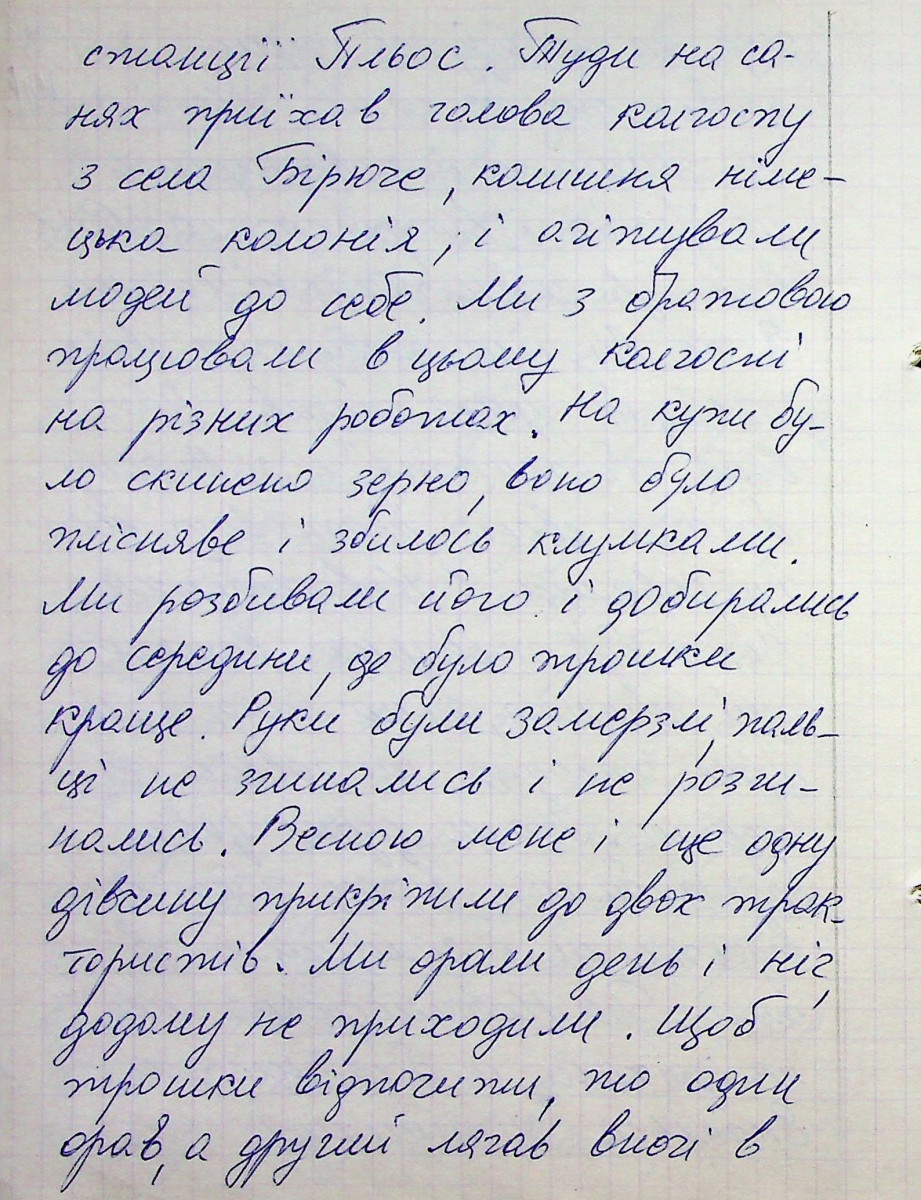 станції Пльос. Туди на са-
нях приїхав голова колгоспу
з села Бірюче, колишня німе-
цька колонія, і агітували
людей до себе. Ми з братовою
працювали в цьому колгоспі
на різних роботах. На купи бу-
ло скинено зерно, воно було
пліснявe і збилось клумками.
Ми розбивали його і добирались
до середини, де було трошки
краще. Руки були замерзлі, паль-
ці не згинались і не розги-
нались. Весною мене і ще одну
дівчину прикріпили до двох трак-
тористів. Ми орали день і ніч,
додому не приходили. Щоб
трошки відпочити, то один
орав, а другий лягав вночі в